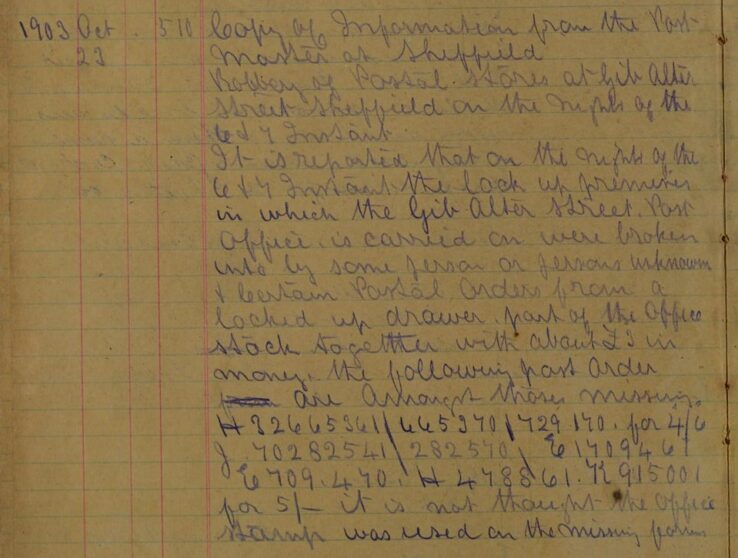 1903 Oct 23 510 Copy of Information from the Post
Master at Sheffield
Robbery of Postal Stores at Gib Alter
Street Sheffield on the nights of the
6 & 7 Instant
It is reported that on the nights of the
6 & 7 Instant the lock up premises
in which the Gib Alter Street Post
Office is carried on were broken
into by some person or persons unknown
& Certain Postal Orders from a
locked up drawer part of the Office
stock together with about £3 in
money. the following post Order
are Amongst those missing.
H 32665361 / 665370 / 729170. for 4/6
J. 70282541 / 282570 / E 1709461
E 709.470. H 478861. K 915001
for 5/- it is not thought the Office
Stamp was used on the missing